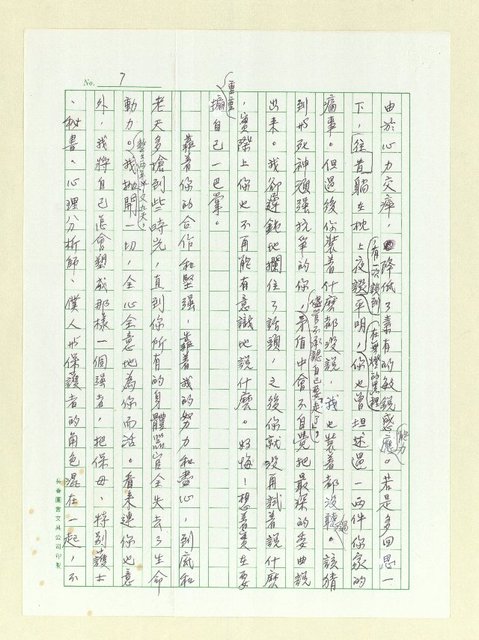 No. 7
由於心力交瘁，降低了素有的敏銳感應能力。若是多回思一
下，往昔躺在枕上夜談（有一次談到）平明，（在無燈的黑裡）你也曾坦述過一兩件你家的
痛事。但過後你裝著什麼都沒說，我也裝著都沒聽。該猜
到與死神頑強抗爭的你，（儘管不承認自己要走了）矛盾中會不自覺把最深的委曲說
出來。我卻遲鈍地攔住了話頭，之後你就沒再試着說什麼
，實際上你也不再能有意識地說什麼。好悔！想着實在要
重重摑自己一巴掌。
靠着你的合作和堅強，靠着我的努力和盡心，到底和
老天多搶到些時光，直到你所有的身體器官全失去了生命
動力。我拋開一切，全心全意地為你而活。看來連你也意
外，我將自己怎會塑成那樣一個強者，把保母、特別護士
、秘書、心理分析師、僕人與保護者的角色混在一起，不